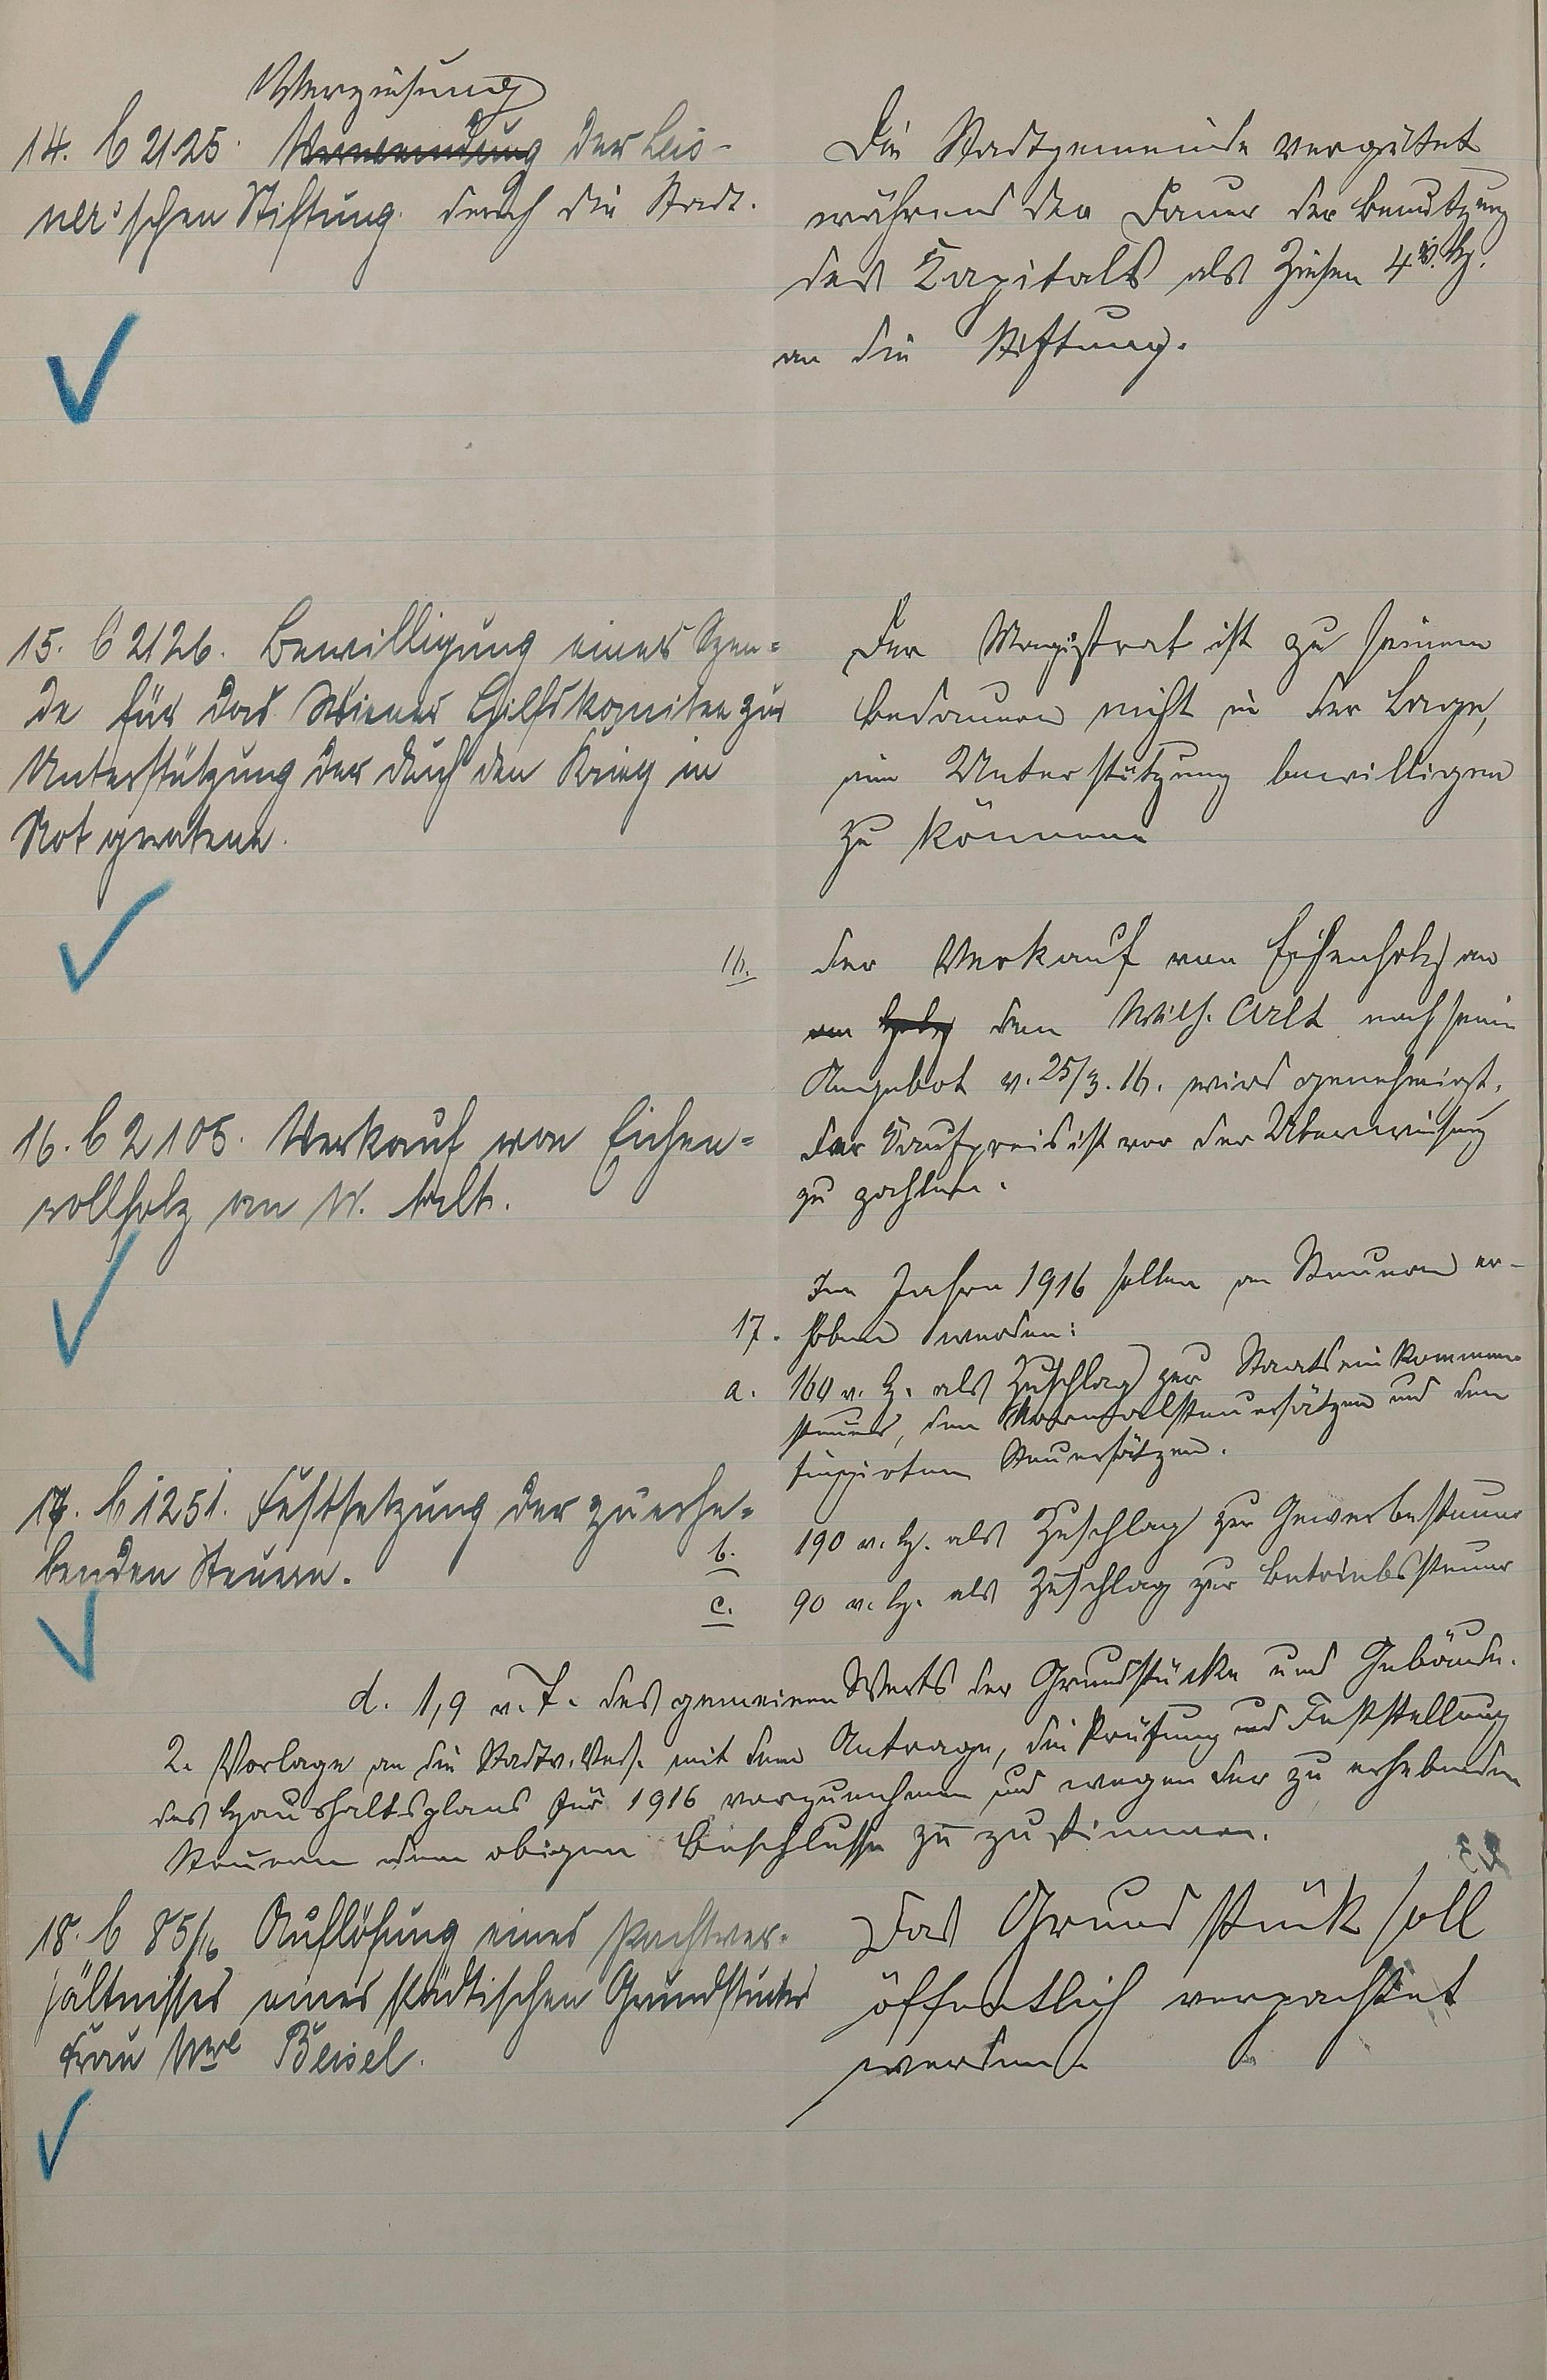 Verzinsung
14. C 2125. Verwendung der Leis-
ner'schen Stiftung durch die Stadt.
Die Stadtgemeinde vergütet
während der Dauer der Benutzung
des Kapitals als Zinsen 4 v. H.
an die Stiftung.
15. C 2126. Bewilligung einer Spen-
de für das Wiener Hilfskomitee zur
Unterstützung der durch den Krieg in
Not geratene.
Der Magistrat ist zu seinem
Bedauern nicht in der Lage,
eine Unterstützung bewilligen
zu können
16. C 2105. Verkauf von Eichen-
rollholz an W. Arlt.
16. Der Verkauf von Eichenholz an
an Holz den Wilh. Arlt nach sein
Angebot v. 25/3. 16. wird genehmigt.
Der Kaufpreis ist vor der Überweisung
zu zahlen.
17. C 1251. Festsetzung der zu erhe-
benden Steuern.
Im Jahre 1916 sollen an Steuern er-
17. hoben werden:
a. 160 v. H. als Zuschlag zur Staatseinkommen
steuer, den Normalsteuersätzen und den
fingierten Steuersätzen.
b. 190 v. H. als Zuschlag zur Gewerbesteuer
c. 90 v. H. als Zuschlag zur Betriebssteuer
d. 1,9 v. T. des gemeinen Werts der Grundstücke und Gebäude.
2. Vorlage an die Stadtv. Vers. mit dem Antrage, die Prüfung und Feststellung
des Haushaltsplans für 1916 vorzunehmen und wegen der zu erhebenden
Steuern dem obigen Beschlusse zu zustimmen.
18. C 85/16 Auflösung eines Pachtver-
hältnisses eines städtischen Grundstückes
Frau Wwe Beisel.
Das Grundstück soll
öffentlich verpachtet
werden.